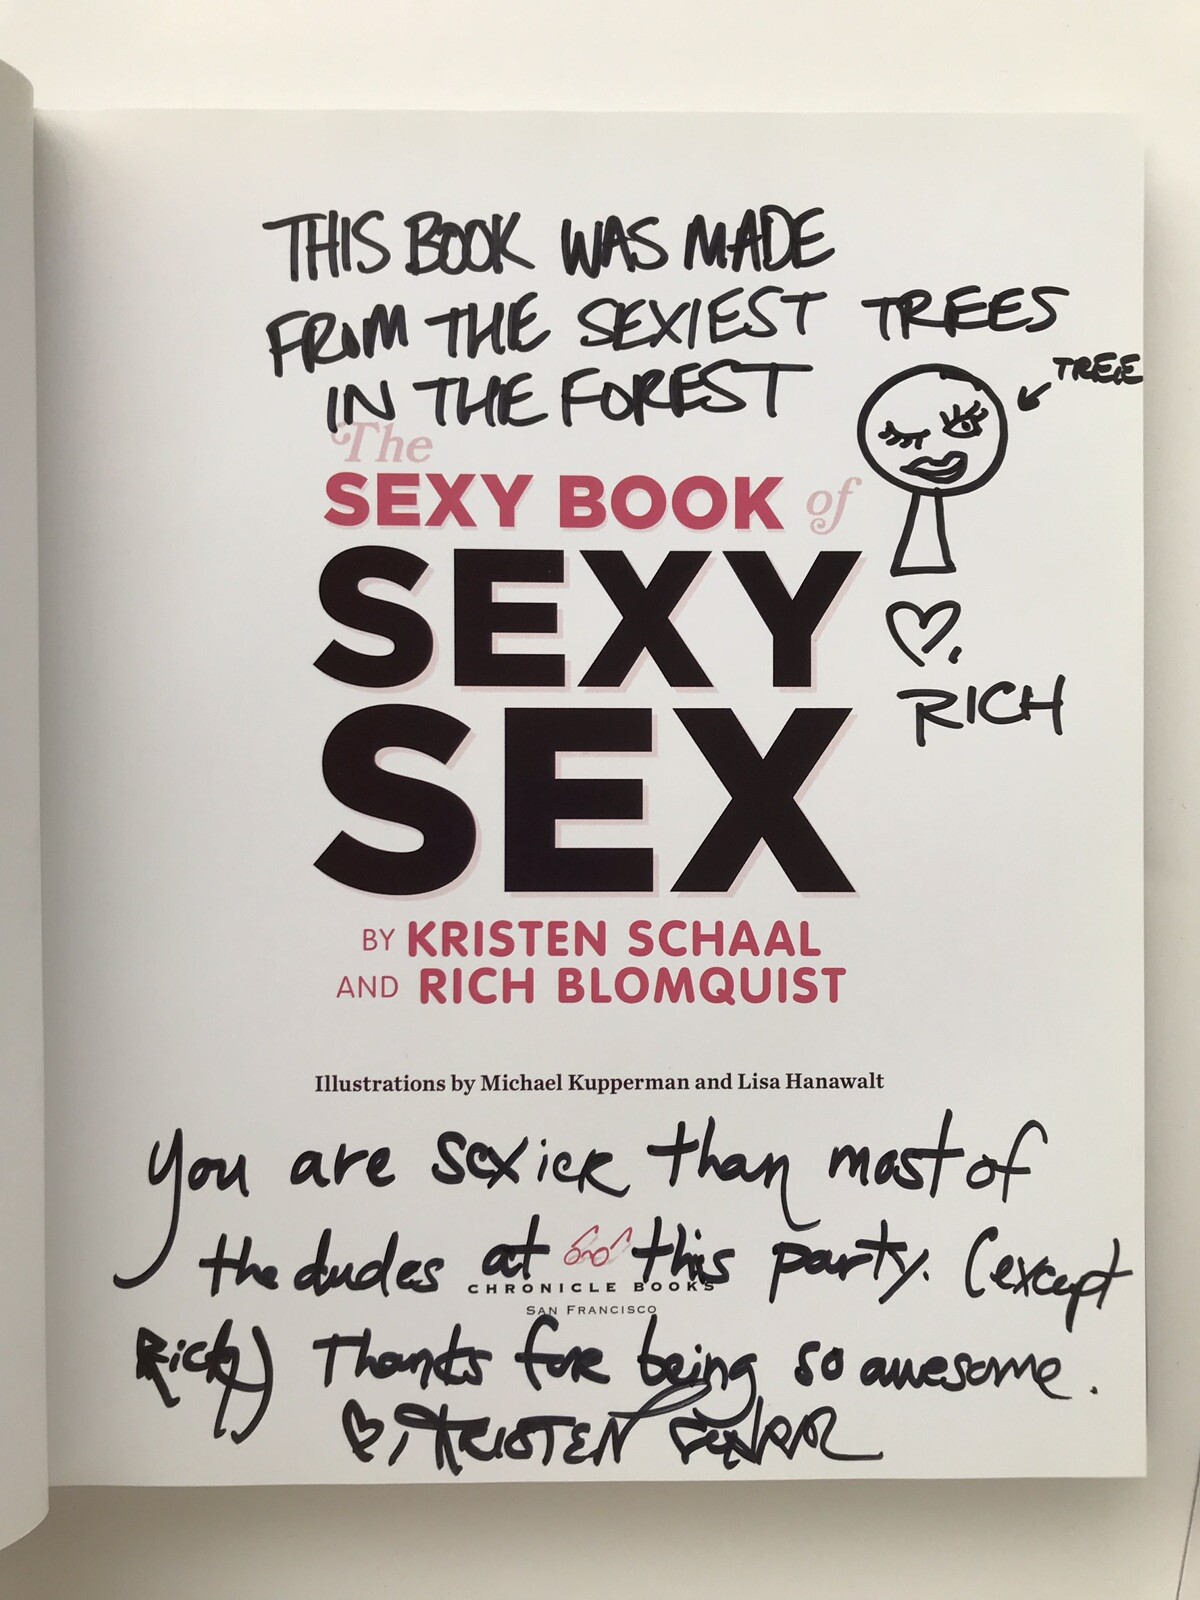 THIS BOOK WAS MADE
FROM THE SEXIEST TREES
IN THE FOREST
TREE
The
SEXY BOOK of
SEXY
SEX
♡,
RICH
BY KRISTEN SCHAAL
AND RICH BLOMQUIST
Illustrations by Michael Kupperman and Lisa Hanawalt
You are sexier than most of
the dudes at this party. (except
CHRONICLE BOOKS
SAN FRANCISCO
Rich) Thanks for being so awesome.
♡, KRISTEN SCHAAL